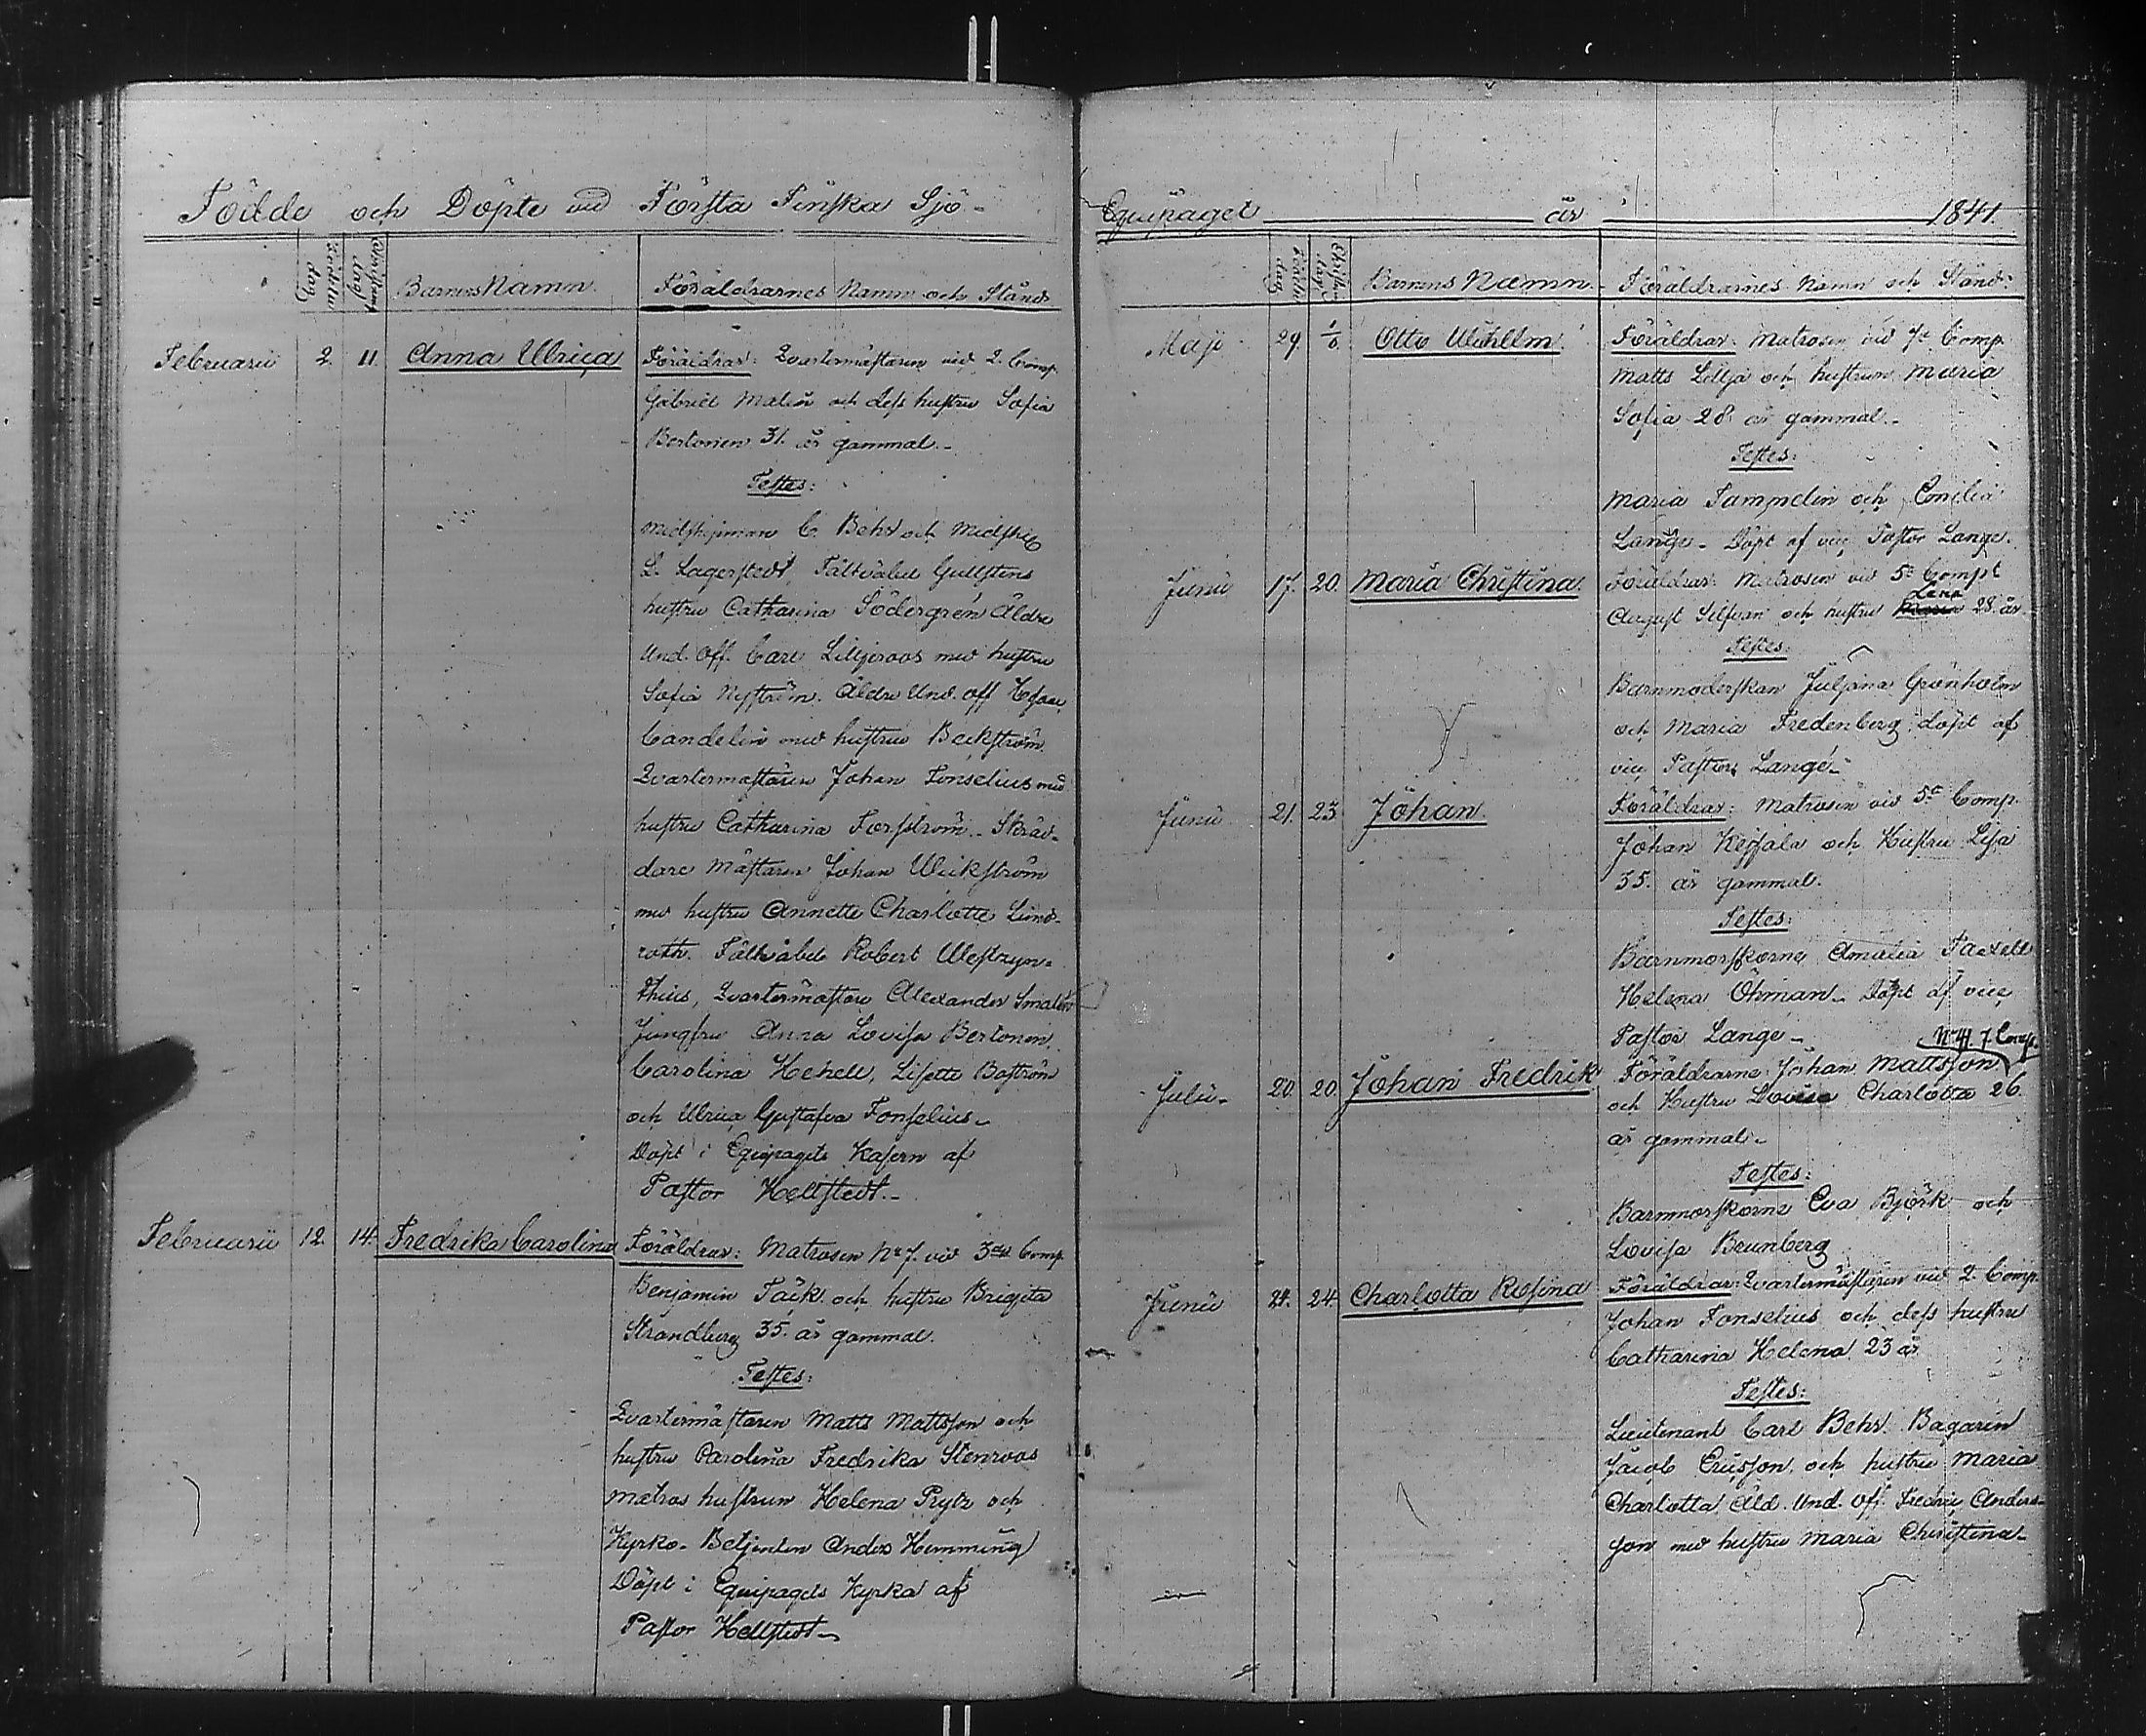 Födde och Döpte vid Första Finska Sjö-
Födelse dag
Christnings dag
Barnens Namn
Föräldrarnes Namn och Stånd
Februarii 2. 11. Anna Ulrica
Föräldrar: Qvartermästaren vid 2. Comp.
Gabriel Malin och dess hustru Sofia
Bertonen 31. år gammal.-
Testes:
Midshipman C. Behr och Midship
L. Lagerstedt, Fältväbel Gullstens
hustru Catharina Södergrén Äldre
Und. Off. Carl Liljeroos med hustru
Sofia Nyström. Äldre Und. Off
Candelin med hustru Beckström
Qvartermästaren Johan Fonselius med
hustru Catharina Forsström. Skräd-
dare Mästaren Johan Wickström
med hustru Annette Charlotte Lind-
roth. Fältväbel Robert Westzyn-
thius, Qvartermästare Alexander Smalén
Jungfru Anna Lovisa Bertonen.
Carolina Hehell, Lisette Boström
och Ulrica Gustafva Fonselius.
Döpt i Equipagets Kasern af
Pastor Hellstedt.-
Februarii 12. 14. Fredrika Carolina
Föräldrar: Matrosen No 7. vid 3dje Comp
Benjamin Täck och hustru Brigita
Strandberg 35. år gammal.
Testes:
Qvartermästaren Matts Mattsson och
hustru Carolina Fredrika Stenroos
Matros hustrun Helena Prytz och
Kyrko-Betjenten Anders Hemming
Döpt i Equipagets Kyrka af
Pastor Hellstedt-
Equipaget år 1841.
Födelse dag
Christnings dag
Barnens Namn.
Föräldrarnes Namn och Stånd:
Maji 29. 1/6. Otto Wilhelm
Föräldrar: Matrosen vid 7e Comp
Matts Lillja och hustrun Maria
Sofia 28. år gammal.-
Testes:
Maria Tammelin och
Lange. Döpt af vice Pastor Lange.
Junii 17. 20. Maria Christina
Föräldrar: Matrosen vid 5e Comp
Lena
August Silfvan och hustru Maria 28. år
Testes:
Barnmoderskan Juljana Grönholm
och Maria Fredenberg döpt af
vice Pastor Lange-
Junii 21. 23. Johan
Föräldrar: Matrosen vid 5e Comp.
Johan och Hustru Lisa
35. år gammal.
Testes:
Barnmorskorna Amalia Taxell
Helena Öhman. Döpt af vice
Pastor Lange-
No 41. 7. Comp.
Julii. 20. 20. Johan Fredrik
Föräldrarne: Johan Mattsson
och Hustru Lovisa Charlotta 26.
år gammal.
Testes:
Barnmorskorna Eva Björk och
Lovisa Brunberg
Junii 24. 24. Charlotta Rosina
Föräldrar: Qvartermästaren vid 2. Comp.
Johan Fonselius och dess hustru
Catharina Helena 23 år
Testes:
Lieutenant Carl Behr. Bagaren
Jacob Ericsson och hustru Maria
Charlotta Äld. Und. Off. Fredric Anders-
son med hustru Maria Christina-